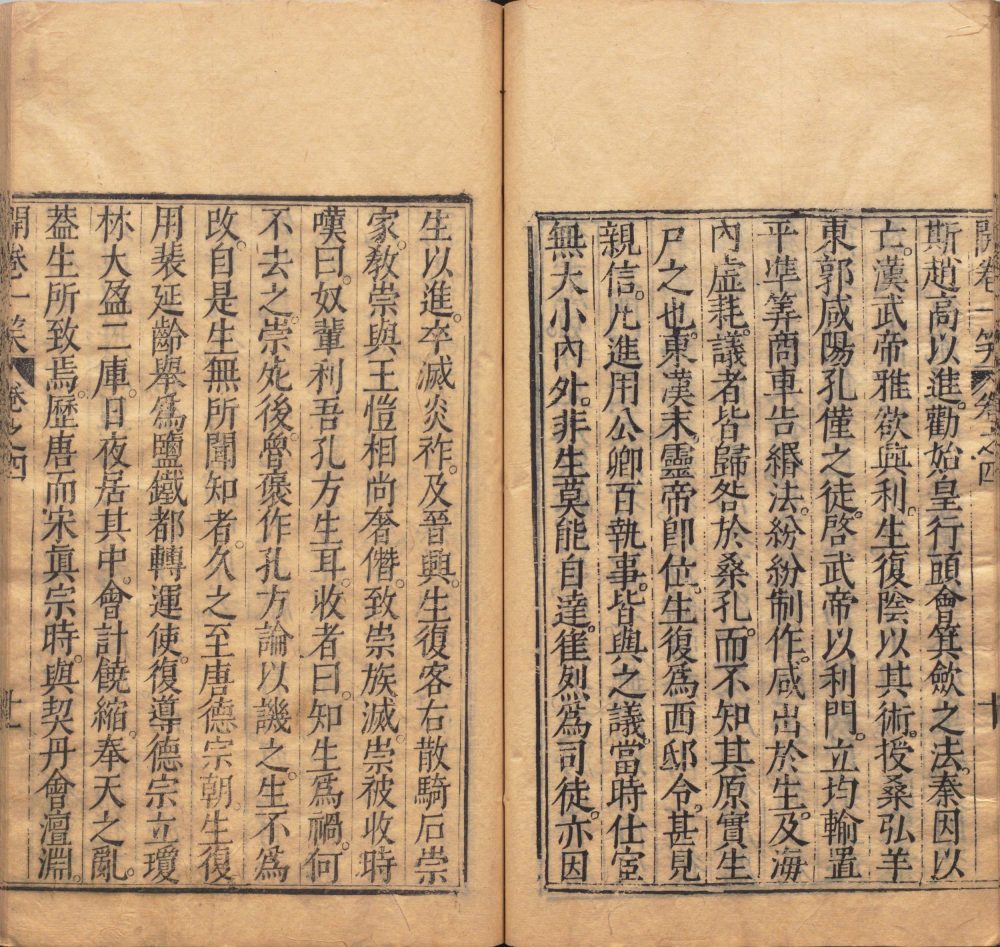 開卷一笑 卷之四 十
斯趙高以進。勸始皇行頭會箕斂之法。秦因以
亡。漢武帝雅欲興利。生復陰以其術。授桑弘羊
東郭咸陽孔僅之徒。啓武帝以利門。立均輸置
平準筭商車告緡法。紛紛制作。咸出於生。及海
內虛耗。議者皆歸咎於桑孔。而不知其原實生
尸之也。東漢末。靈帝卽位。生復爲西邸令。甚見
親信。凡進用公卿百執事。皆與之議。當時仕宦
無大小內外。非生莫能自達。崔烈爲司徒。亦因
生以進。卒滅炎祚。及晉興。生復客右散騎石崇
家。敎崇與王愷相尚奢僭。致崇族滅。崇被收時
嘆曰。奴輩利吾孔方生耳。收者曰。知生爲禍。何
不去之。崇死後。魯褒作孔方論以譏之。生不爲
改。自是生無所聞知者。久之至唐德宗朝。生復
用裴延齡舉爲鹽鐵都轉運使。復導德宗立瓊
林大盈二庫。日夜居其中。會計饒縮。奉天之亂。
葢生所致焉。歷唐而宋眞宗時。與契丹會澶淵。
開卷一笑 卷之四 十一